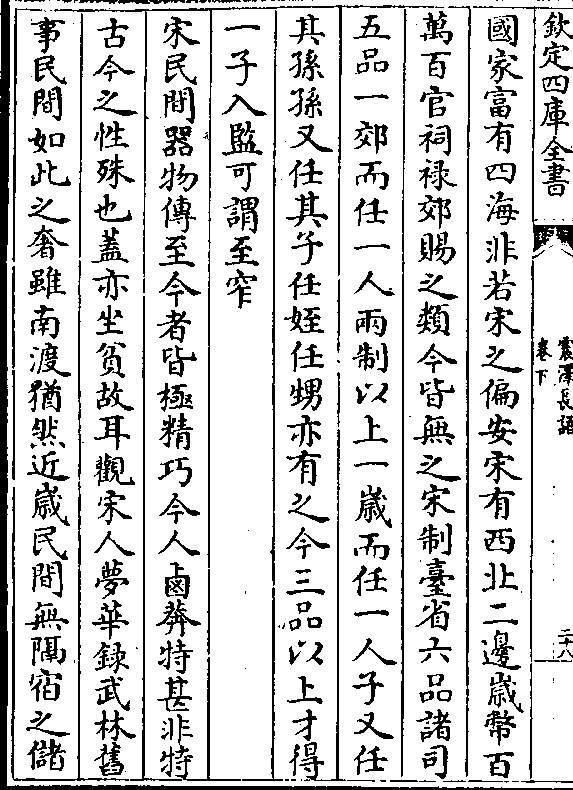 欽定四庫全書
震澤長語
卷下
二十八
國家富有四海非若宋之偏安宋有西北二邊歲幣百
萬百官祠祿郊賜之類今皆無之宋制臺省六品諸司
五品一郊而任一人兩制以上一歲而任一人子又任
其孫孫又任其子任姪任甥亦有之今三品以上才得
一子入監可謂至窄
宋民間器物傳至今者皆極精巧今人鹵莽特甚非特
古今之性殊也蓋亦坐貧故耳觀宋人夢華錄武林舊
事民間如此之奢雖南渡猶然近歲民間無隔宿之儲